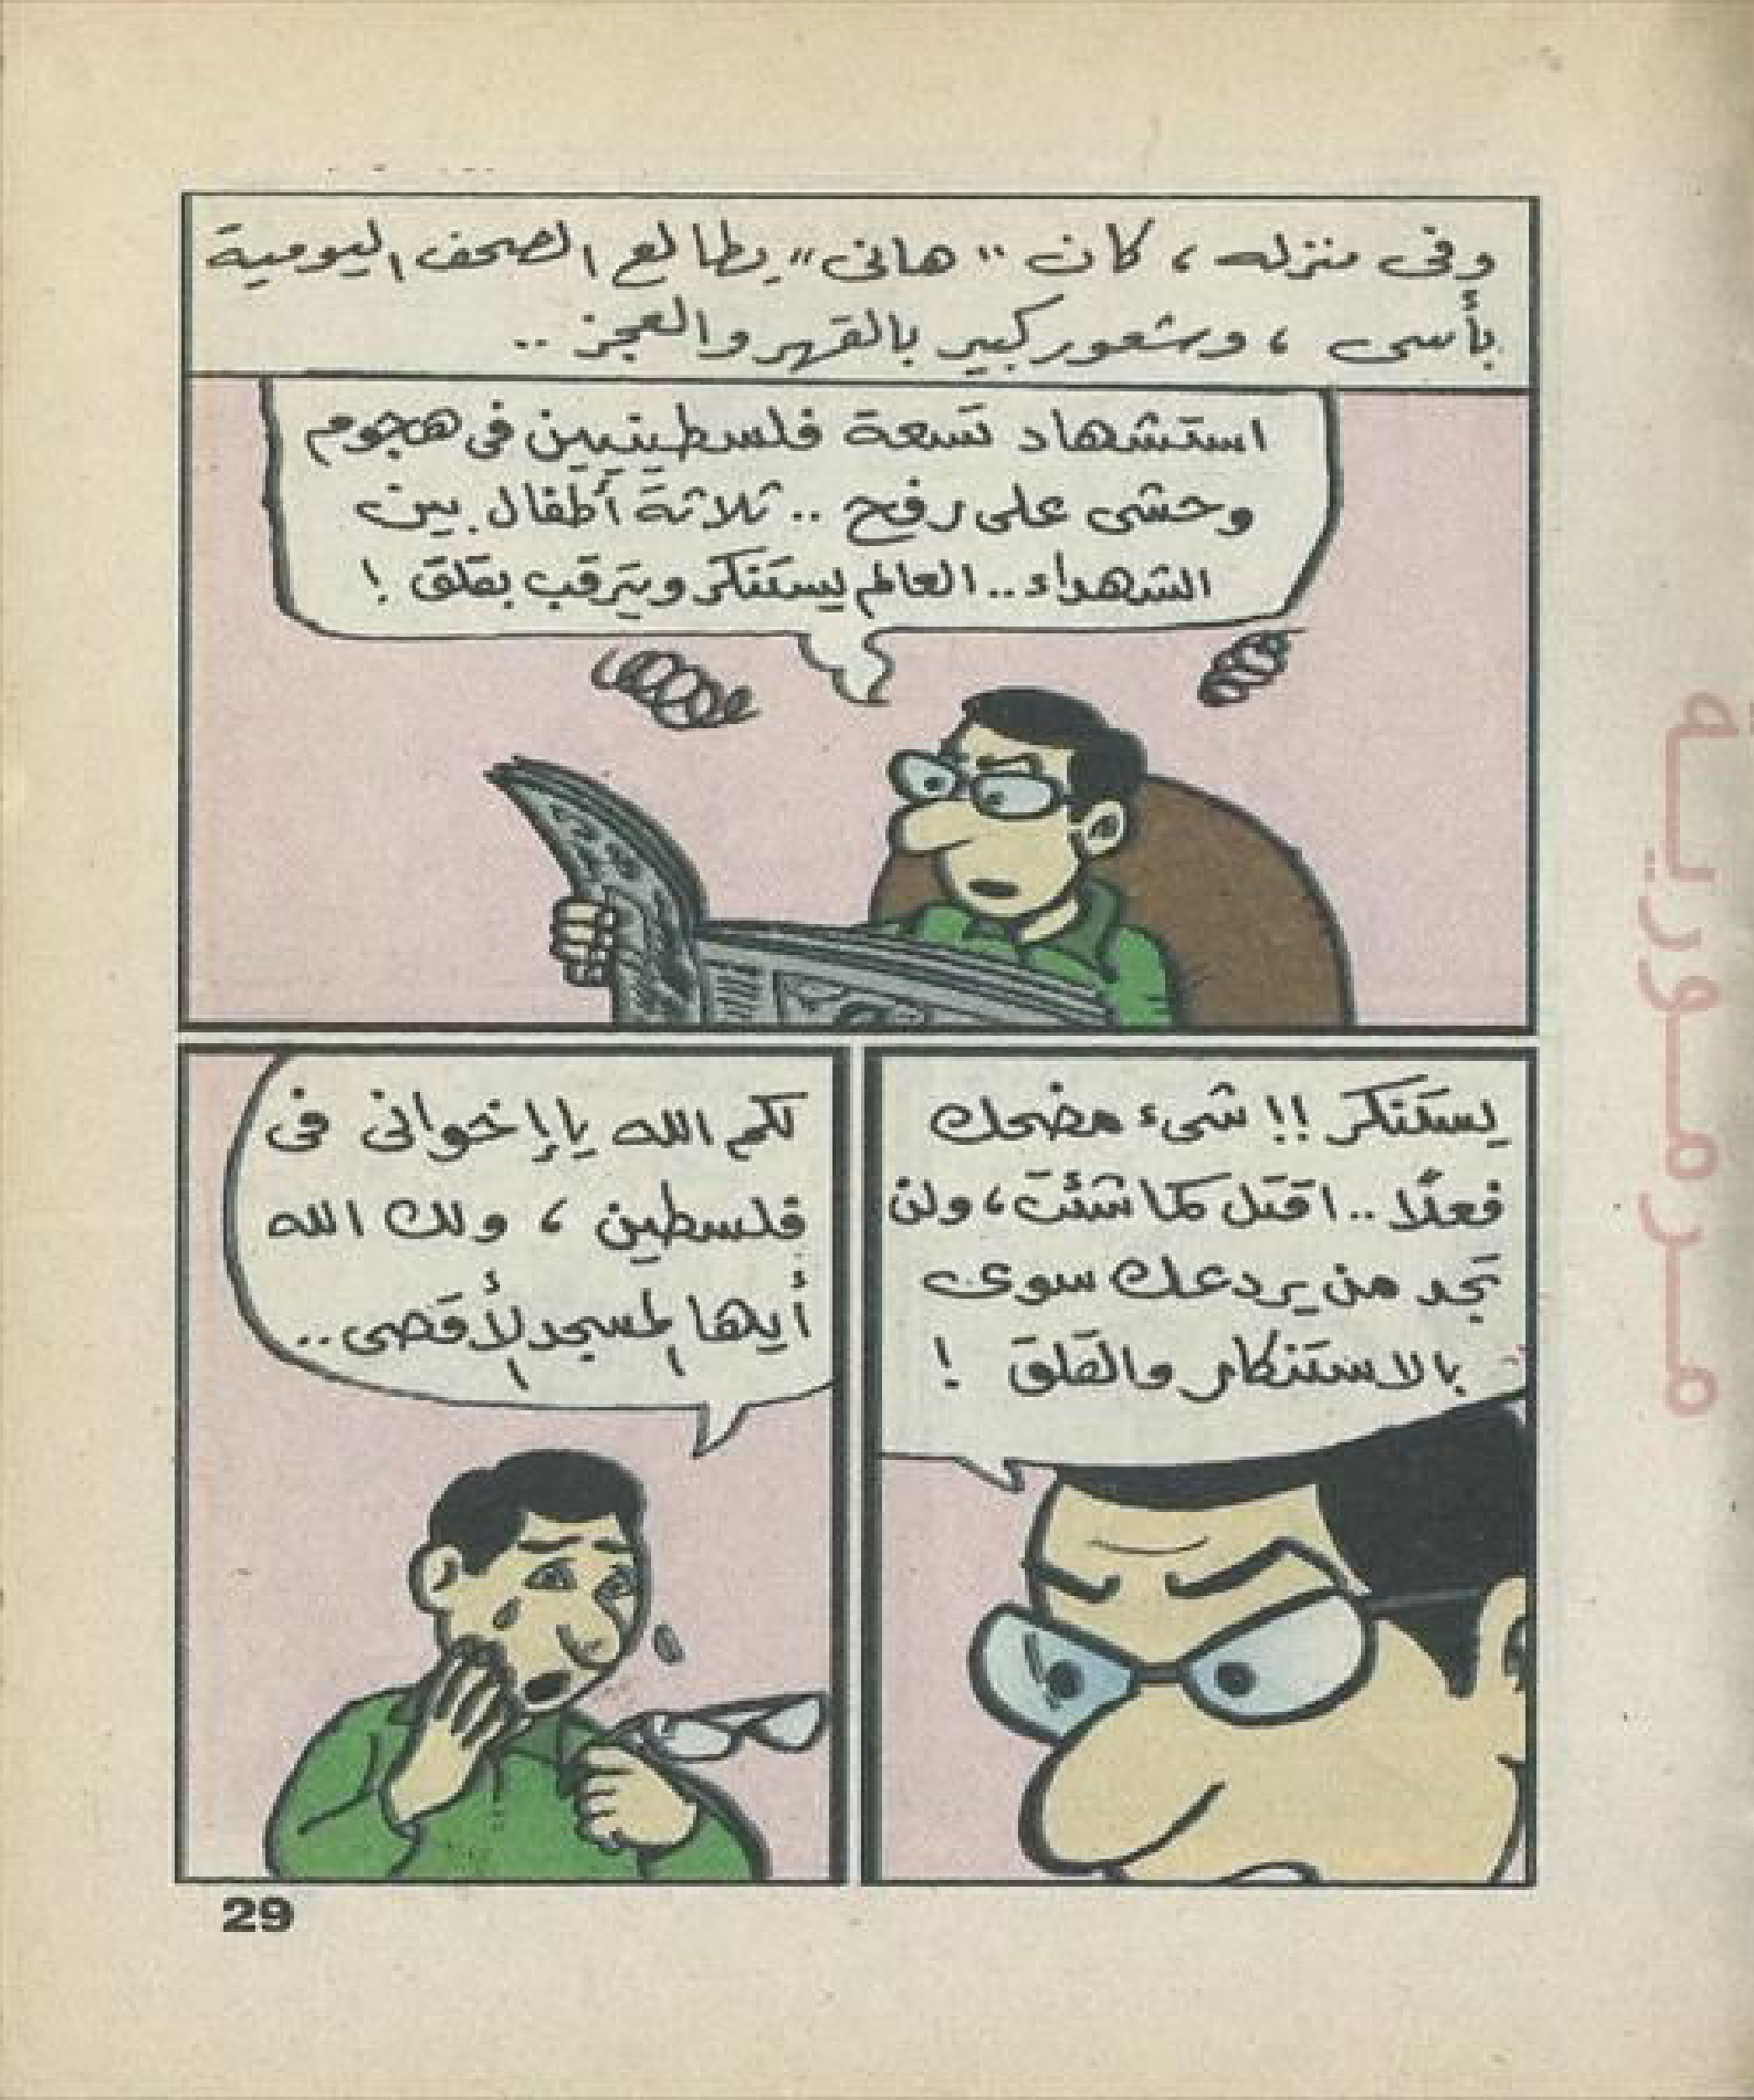 وفى منزله ، كان "هانى" يطالع الصحف اليومية
بأسى ، وشعور كبير بالقهر والعجز ..
استشهاد تسعة فلسطينيين فى هجوم
وحشى على رفح .. ثلاثة أطفال بين
الشهداء .. العالم يستنكر ويترقب بقلق !
يستنكر !! شىء مضحك
فعلًا .. اقتل كما شئت ، ولن
تجد من يردعك سوى
بالاستنكار والقلق !
لكم الله يا إخوانى فى
فلسطين ، ولك الله
أيها المسجد الأقصى ..
29